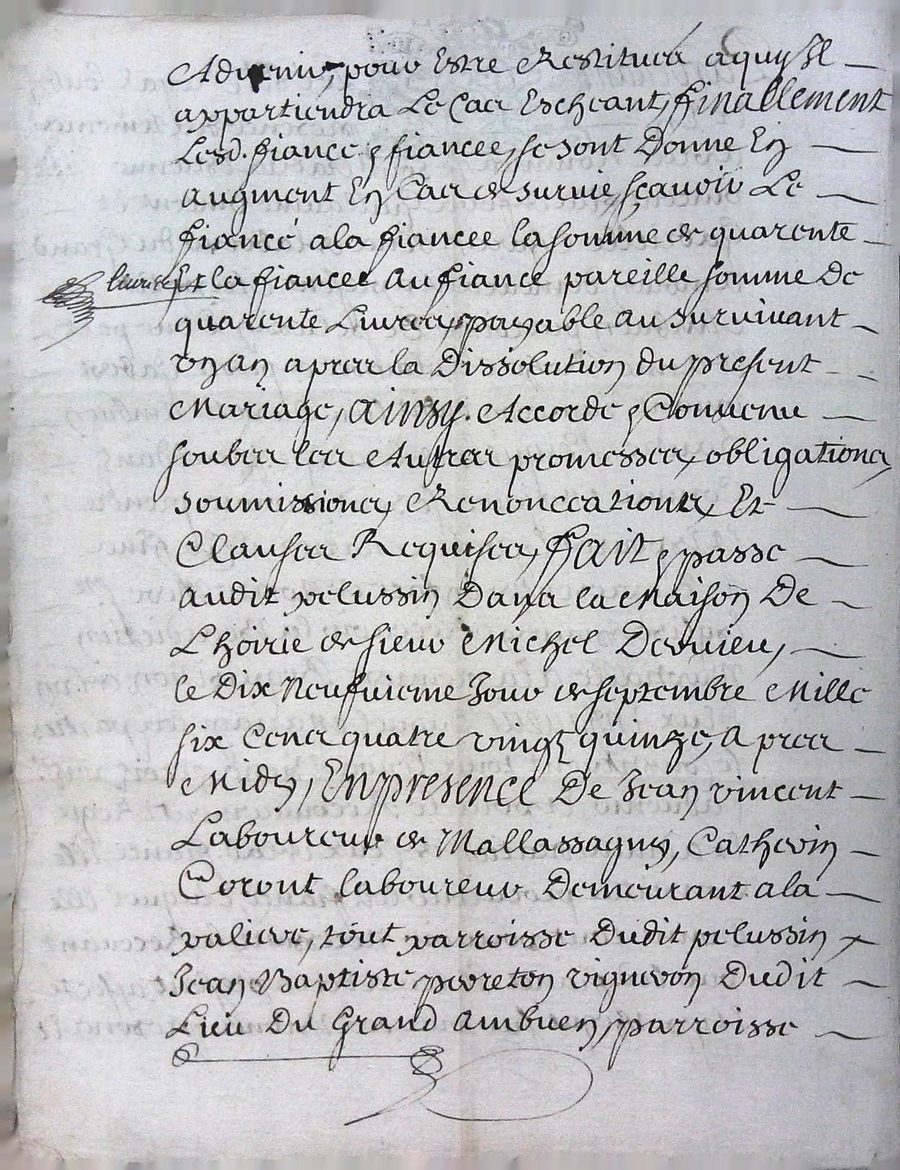 Advenir, pour Estre Restituée a quy Il
appartiendra Le Cas Escheant, finallement
Lesd. fiancé & fiancée, se sont Donné En
augment En Cas de survie, scavoir Le
fiancé a la fiancée la somme de quarente
livres Et la fiancée au fiancé pareille somme De
quarente Livres, payable au survivant
un an apres la Dissolution du present
Mariage, ainsy Accordé & Convenu
soubz les Autres promesses, obligations,
soumissions, Renonceations, Et
Clauses Requises, fait & passé
audit pelussin Dans la Maison De
L'hoirie de sieur Michel Dervieu,
le Dix Neufuieme Jour de septembre Mille
six Cens quatre vingt quinze, apres
Midy, En presence De Jean vincent
Laboureur de Mallassagny, Catherin
Coront laboureur Demeurant a la
valieve, tout parroisse Dudit pelussin,
Jean Baptiste perreton vigneron Dudit
Lieu Du Grand Ambuen, parroisse